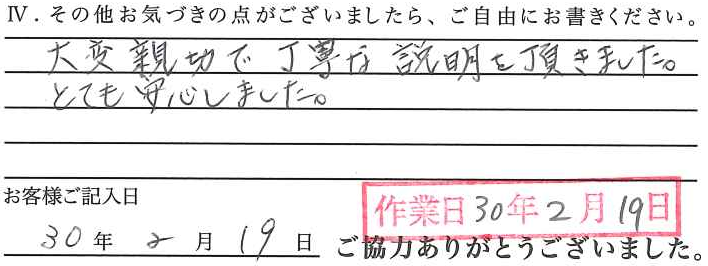 Ⅳ．その他お気づきの点がございましたら、ご自由にお書きください。
大変親切で丁寧な説明を頂きました。
とても安心しました。
お客様ご記入日
作業日30年2月19日
30年2月19日
ご協力ありがとうございました。